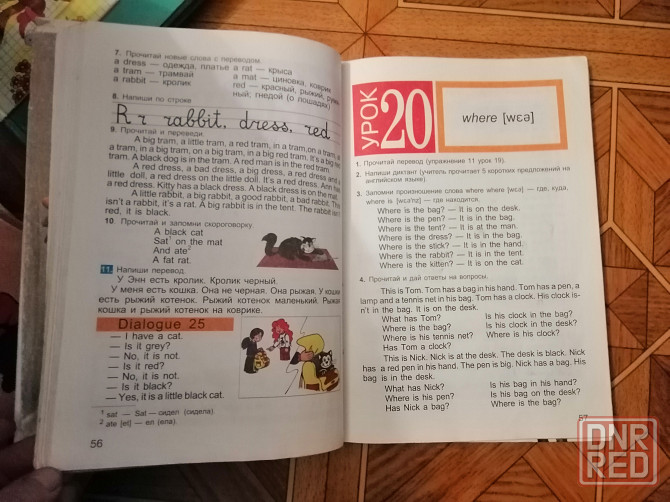 7. Прочитай новые слова с переводом.
a dress — одежда, платье a rat — крыса
a tram — трамвай a mat — циновка, коврик
a rabbit — кролик red — красный, рыжий,
ный; гнедой (о лошадях)
8. Напиши по строке
R r rabbit, dress, red
9. Прочитай и переведи.
A big tram, a little tram, a red tram, in a tram, on a tram, a
tram, in a big tram, on a big tram, in a big red tram. It's a big
tram. A black dog is in the tram. A red man is in the red tram.
A red dress, a bad dress, a big dress, a red dress and a
little doll, a red dress on the little doll. It's a red dress. Ann has
a red dress. Kitty has a black dress. A black dress is on the mat.
A little rabbit, a big rabbit, a good rabbit, a bad rabbit. The
isn't a rabbit, it's a rat. A big rabbit is in the tent. The rabbit isn't
red, it is black.
10. Прочитай и запомни скороговорку.
A black cat
Sat¹ on the mat
And ate²
A fat rat.
11. Напиши перевод.
У Энн есть кролик. Кролик черный.
У меня есть кошка. Она не черная. Она рыжая. У кошки
есть рыжий котенок. Рыжий котенок маленький. Рыжая
кошка и рыжий котенок на коврике.
Dialogue 25
— I have a cat.
— Is it grey?
— No, it is not.
— Is it red?
— No, it is not.
— Is it black?
— Yes, it is a little black cat.
¹ sat — Sat — сидел (сидела).
² ate [et] — ел (ела).
56
УРОК
20
where [wɛə]
1. Прочитай перевод (упражнение 11 урок 19).
2. Напиши диктант (учитель прочитает 5 коротких предложений на
английском языке)
3. Запомни произношение слова where where [wɛə] — где, куда,
where is [wɛəˈrɪz] — где находится.
Where is the bag? — It is on the desk.
Where is the pen? — It is in the bag.
Where is the tent? — It is at the man.
Where is the dress? — It is in the bag.
Where is the stick? — It is in the hand.
Where is the rabbit? — It is in the tent.
Where is the kitten? — It is on the cat.
4. Прочитай и дай ответы на вопросы.
This is Tom. Tom has a bag in his hand. Tom has a pen, a
lamp and a tennis net in his bag. Tom has a clock. His clock is-
n't in the bag. It is on the desk.
What has Tom? Is his clock in the bag?
Where is the bag? Is his clock in the desk?
Where is his tennis net? Where is his clock?
Has Tom a clock?
This is Nick. Nick is at the desk. The desk is black. Nick
has a red pen in his hand. The pen is big. Nick has a bag. His
bag is in the desk.
What has Nick? Is his bag in his hand?
Where is his pen? Is his bag on the desk?
Has Nick a bag? Where is the bag?
57
DNR
RED